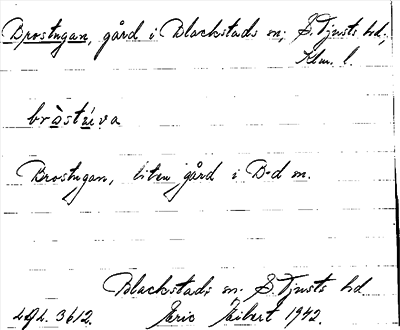 Brostugan, gård i Blackstads sn; S. Tjusts hd,
Klm. l.
bròstu̇va
Brostugan, liten gård i B-d sn.
Blackstads sn. S. Tjusts hd
3612. Eric 1942